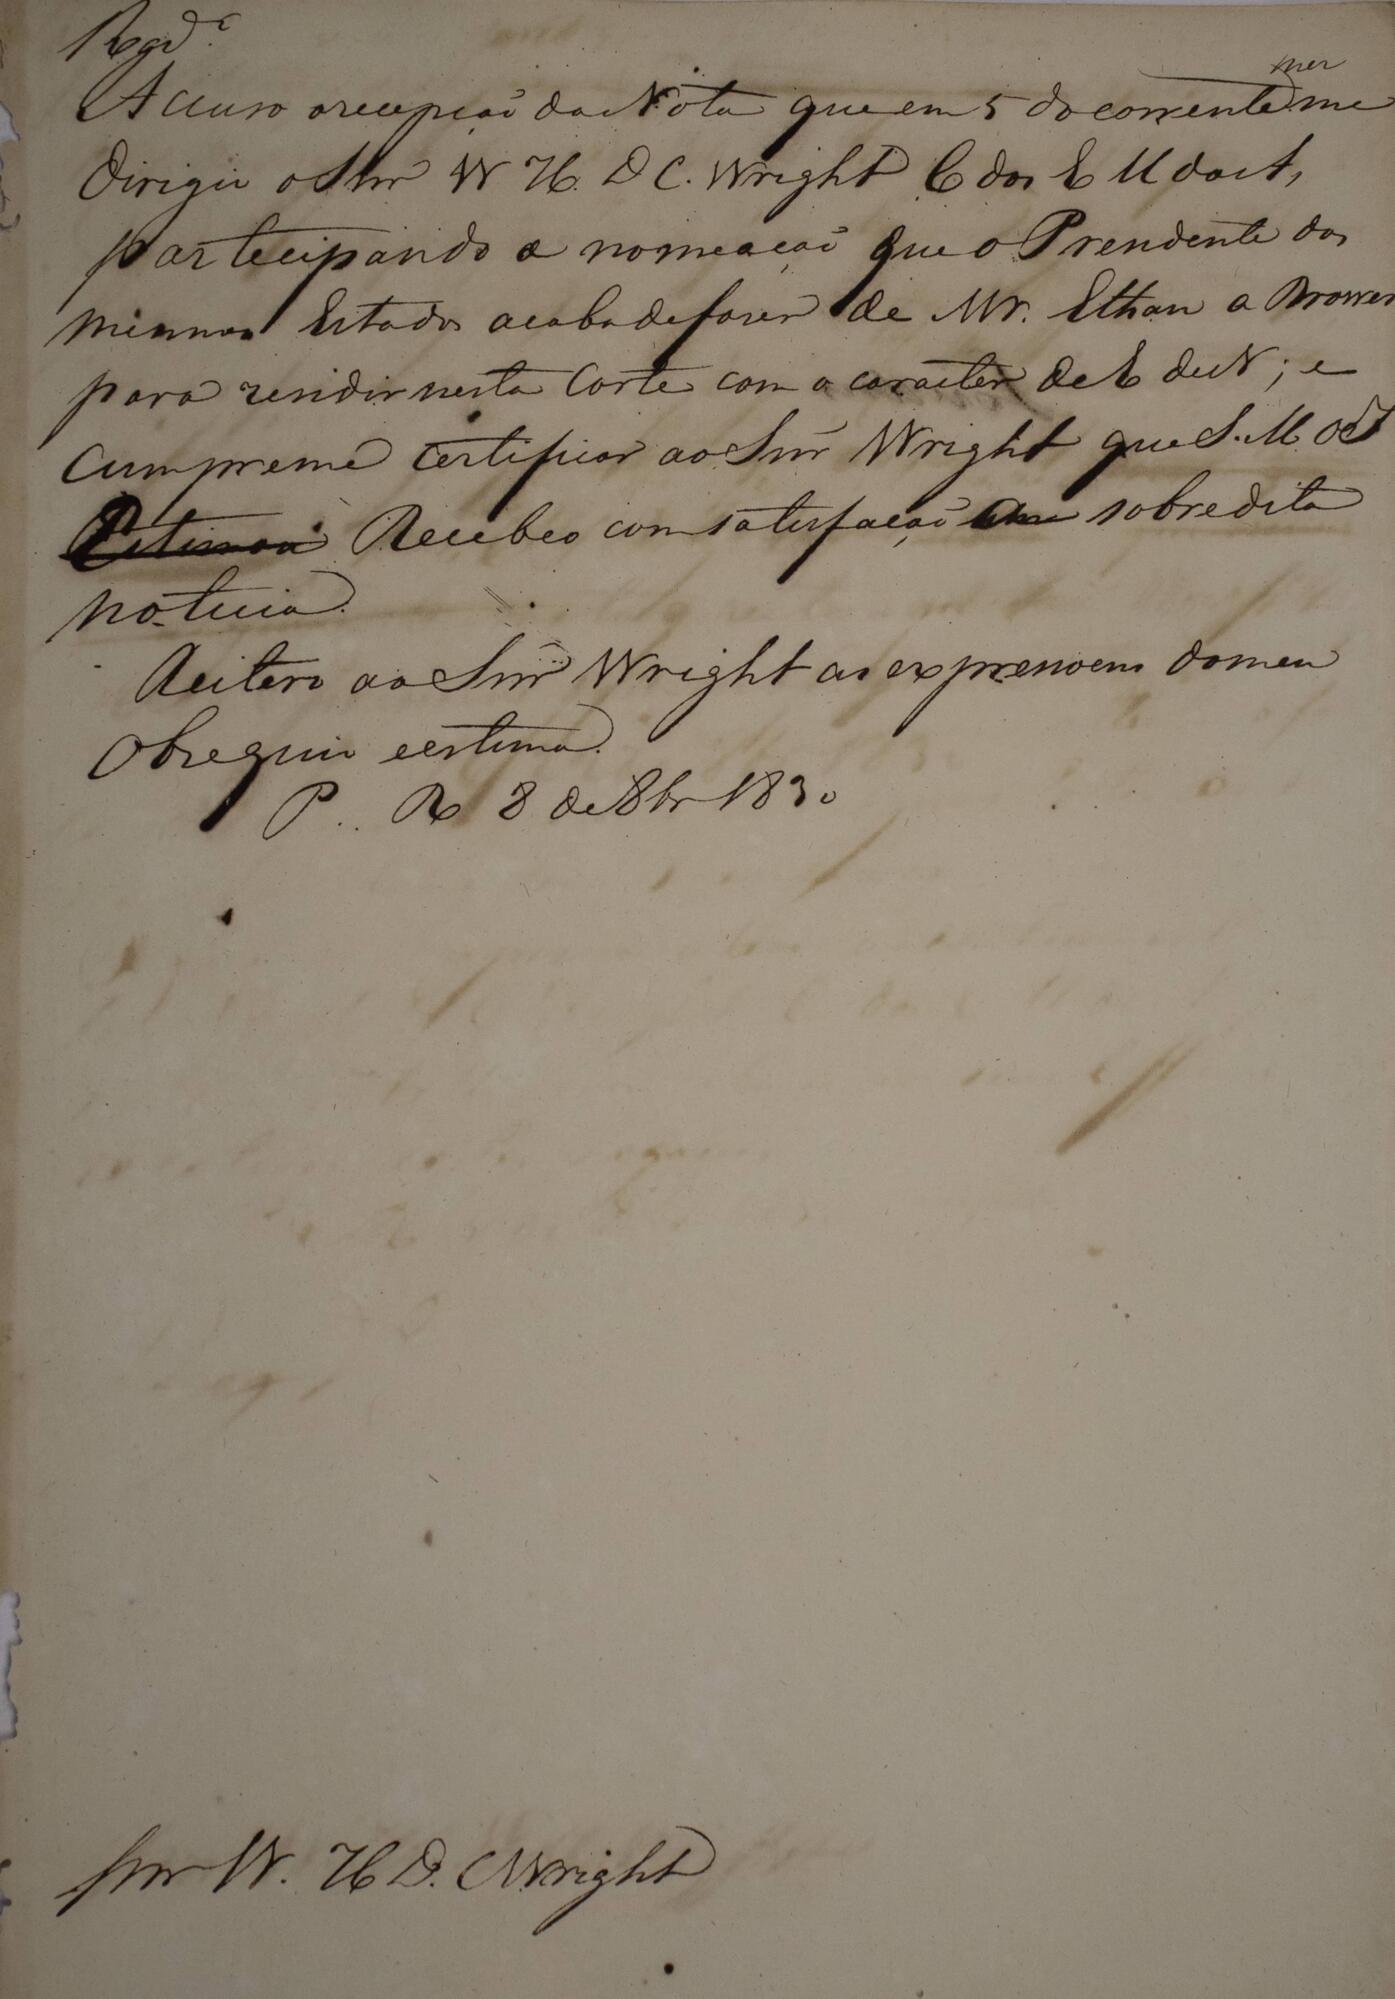 Regd.ª
mez
Accuso a recepção da Nota que em 5 do corrente me
dirigio o Snr W H. D C. Wright E dos E U da A,
partecipando a nomeação que o Prezidente dos
mesmos Estados acaba de fazer de Mr. Ethan a Brown
para rezidir nesta Corte com o caracter de E de N; e
cumpreme certificar ao Snr Wright que S. M. O I
Recebeo com satisfação sobredita
noticia.
Reitero ao Snr Wright as expressoens do meu
obsequio e estima.
P. R 8 de 8br 1830
Snr W. H D. C Wright